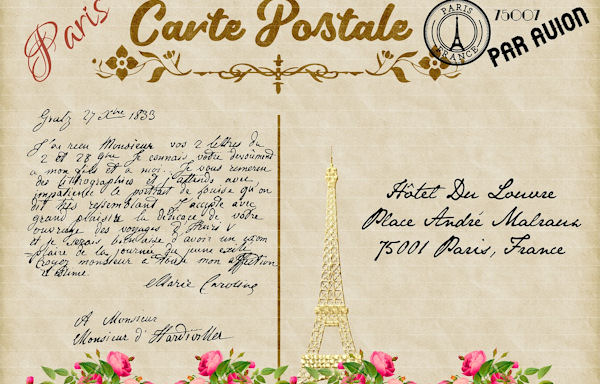 Paris
Carte Postale
PARIS
FRANCE
75007
PAR AVION
Gratz 27 Xbre 1833
J'ai reçu Monsieur vos 2 lettres du
2 et 28 9bre Je connais votre dévouement
à mon fils et à moi. Je vous remercie
des lithographies et j'attends avec
impatience le portrait de Louise qu'on
dit très ressemblant J'accepte avec
grand plaisir la dédicace de votre
ouvrage des voyages d'Henri V
et je serais bien aise d'avoir un exem
plaire de la journée du jeune exilé
Croyez monsieur à toute mon affection
et estime
Marie Caroline
A Monsieur
Monsieur d'Hardiviller
Hôtel Du Louvre
Place André Malraux
75001 Paris, France